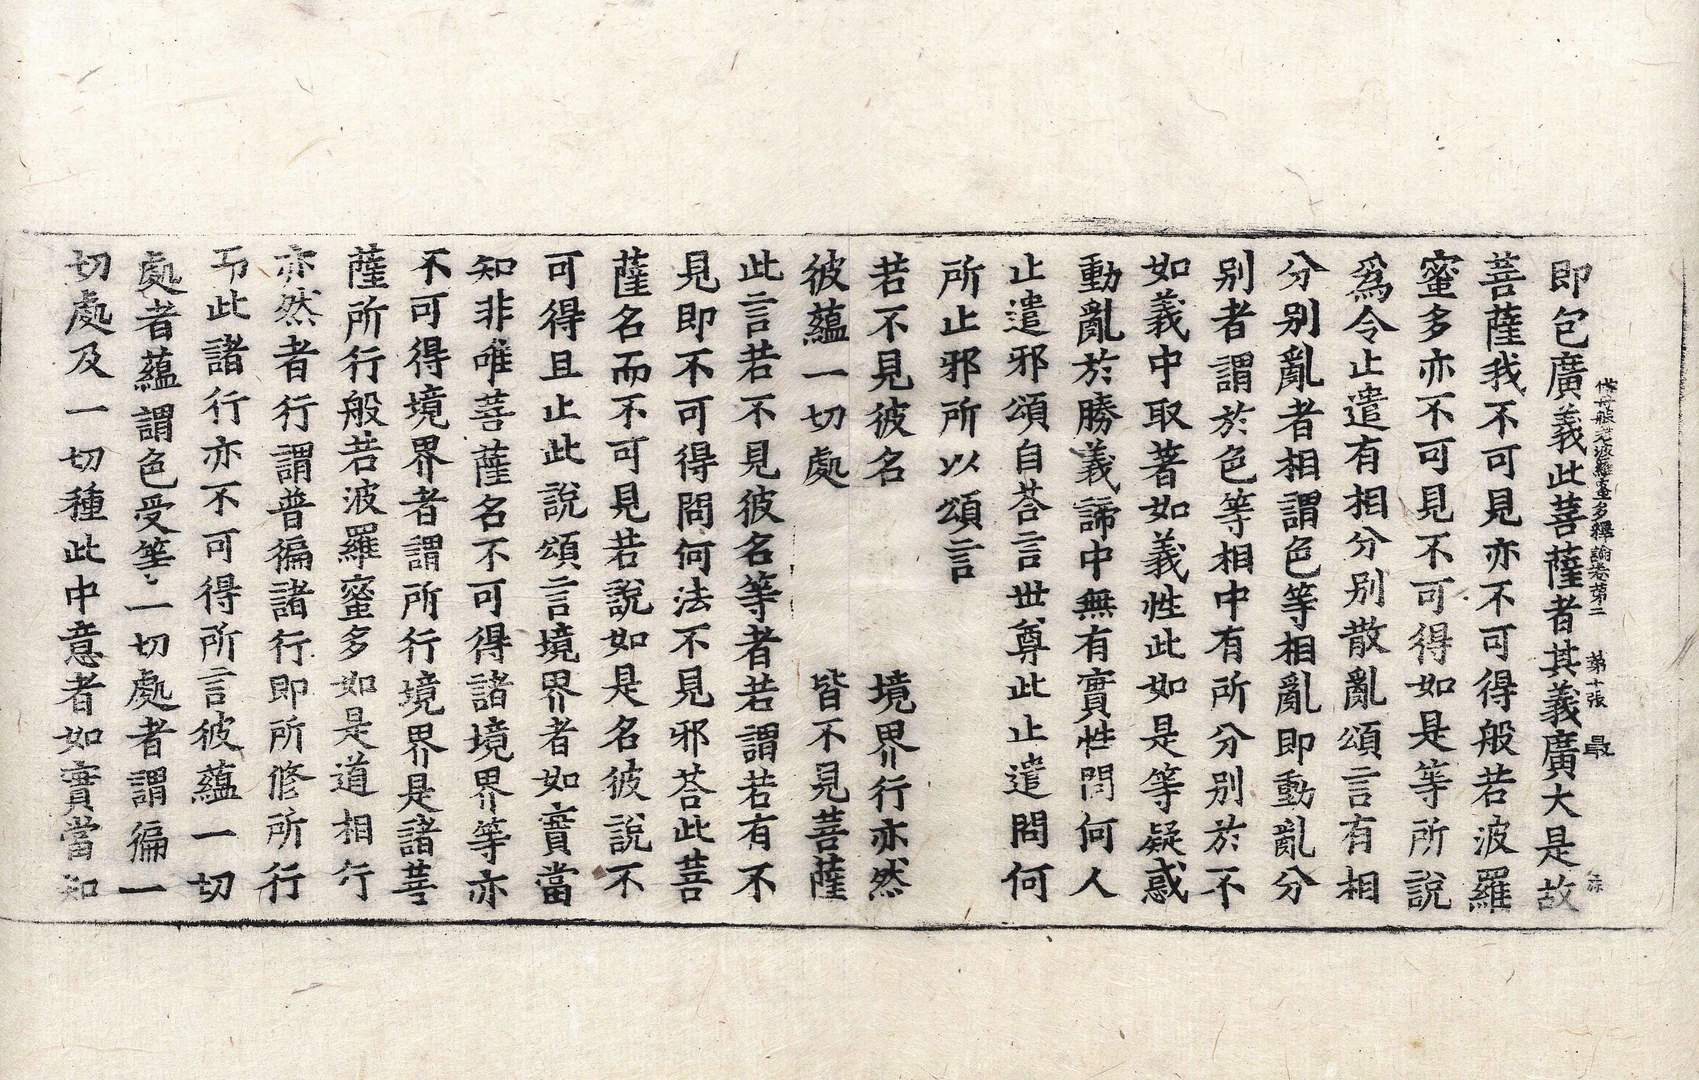 佛母般若波羅蜜多釋論卷第二 第十張 最
即包廣義此菩薩者其義廣大是故
菩薩我不可見亦不可得般若波羅
蜜多亦不可見不可得如是等所說
爲令止遣有相分别散亂頌言有相
分别亂者相謂色等相亂即動亂分
别者謂於色等相中有所分别於不
如義中取著如義性此如是等疑惑
動亂於勝義諦中無有實性問何人
止遣邪頌自荅言世尊此止遣問何
所止邪所以頌言
若不見彼名 境界行亦然
彼蘊一切處 皆不見菩薩
此言若不見彼名等者若謂若有不
見即不可得問何法不見邪荅此菩
薩名而不可見若說如是名彼說不
可得且止此說頌言境界者如實當
知非唯菩薩名不可得諸境界等亦
不可得境界者謂所行境界是諸菩
薩所行般若波羅蜜多如是道相行
亦然者行謂普徧諸行即所修所行
而此諸行亦不可得所言彼蘊一切
處者蘊謂色受等一切處者謂徧一
切處及一切種此中意者如實當知